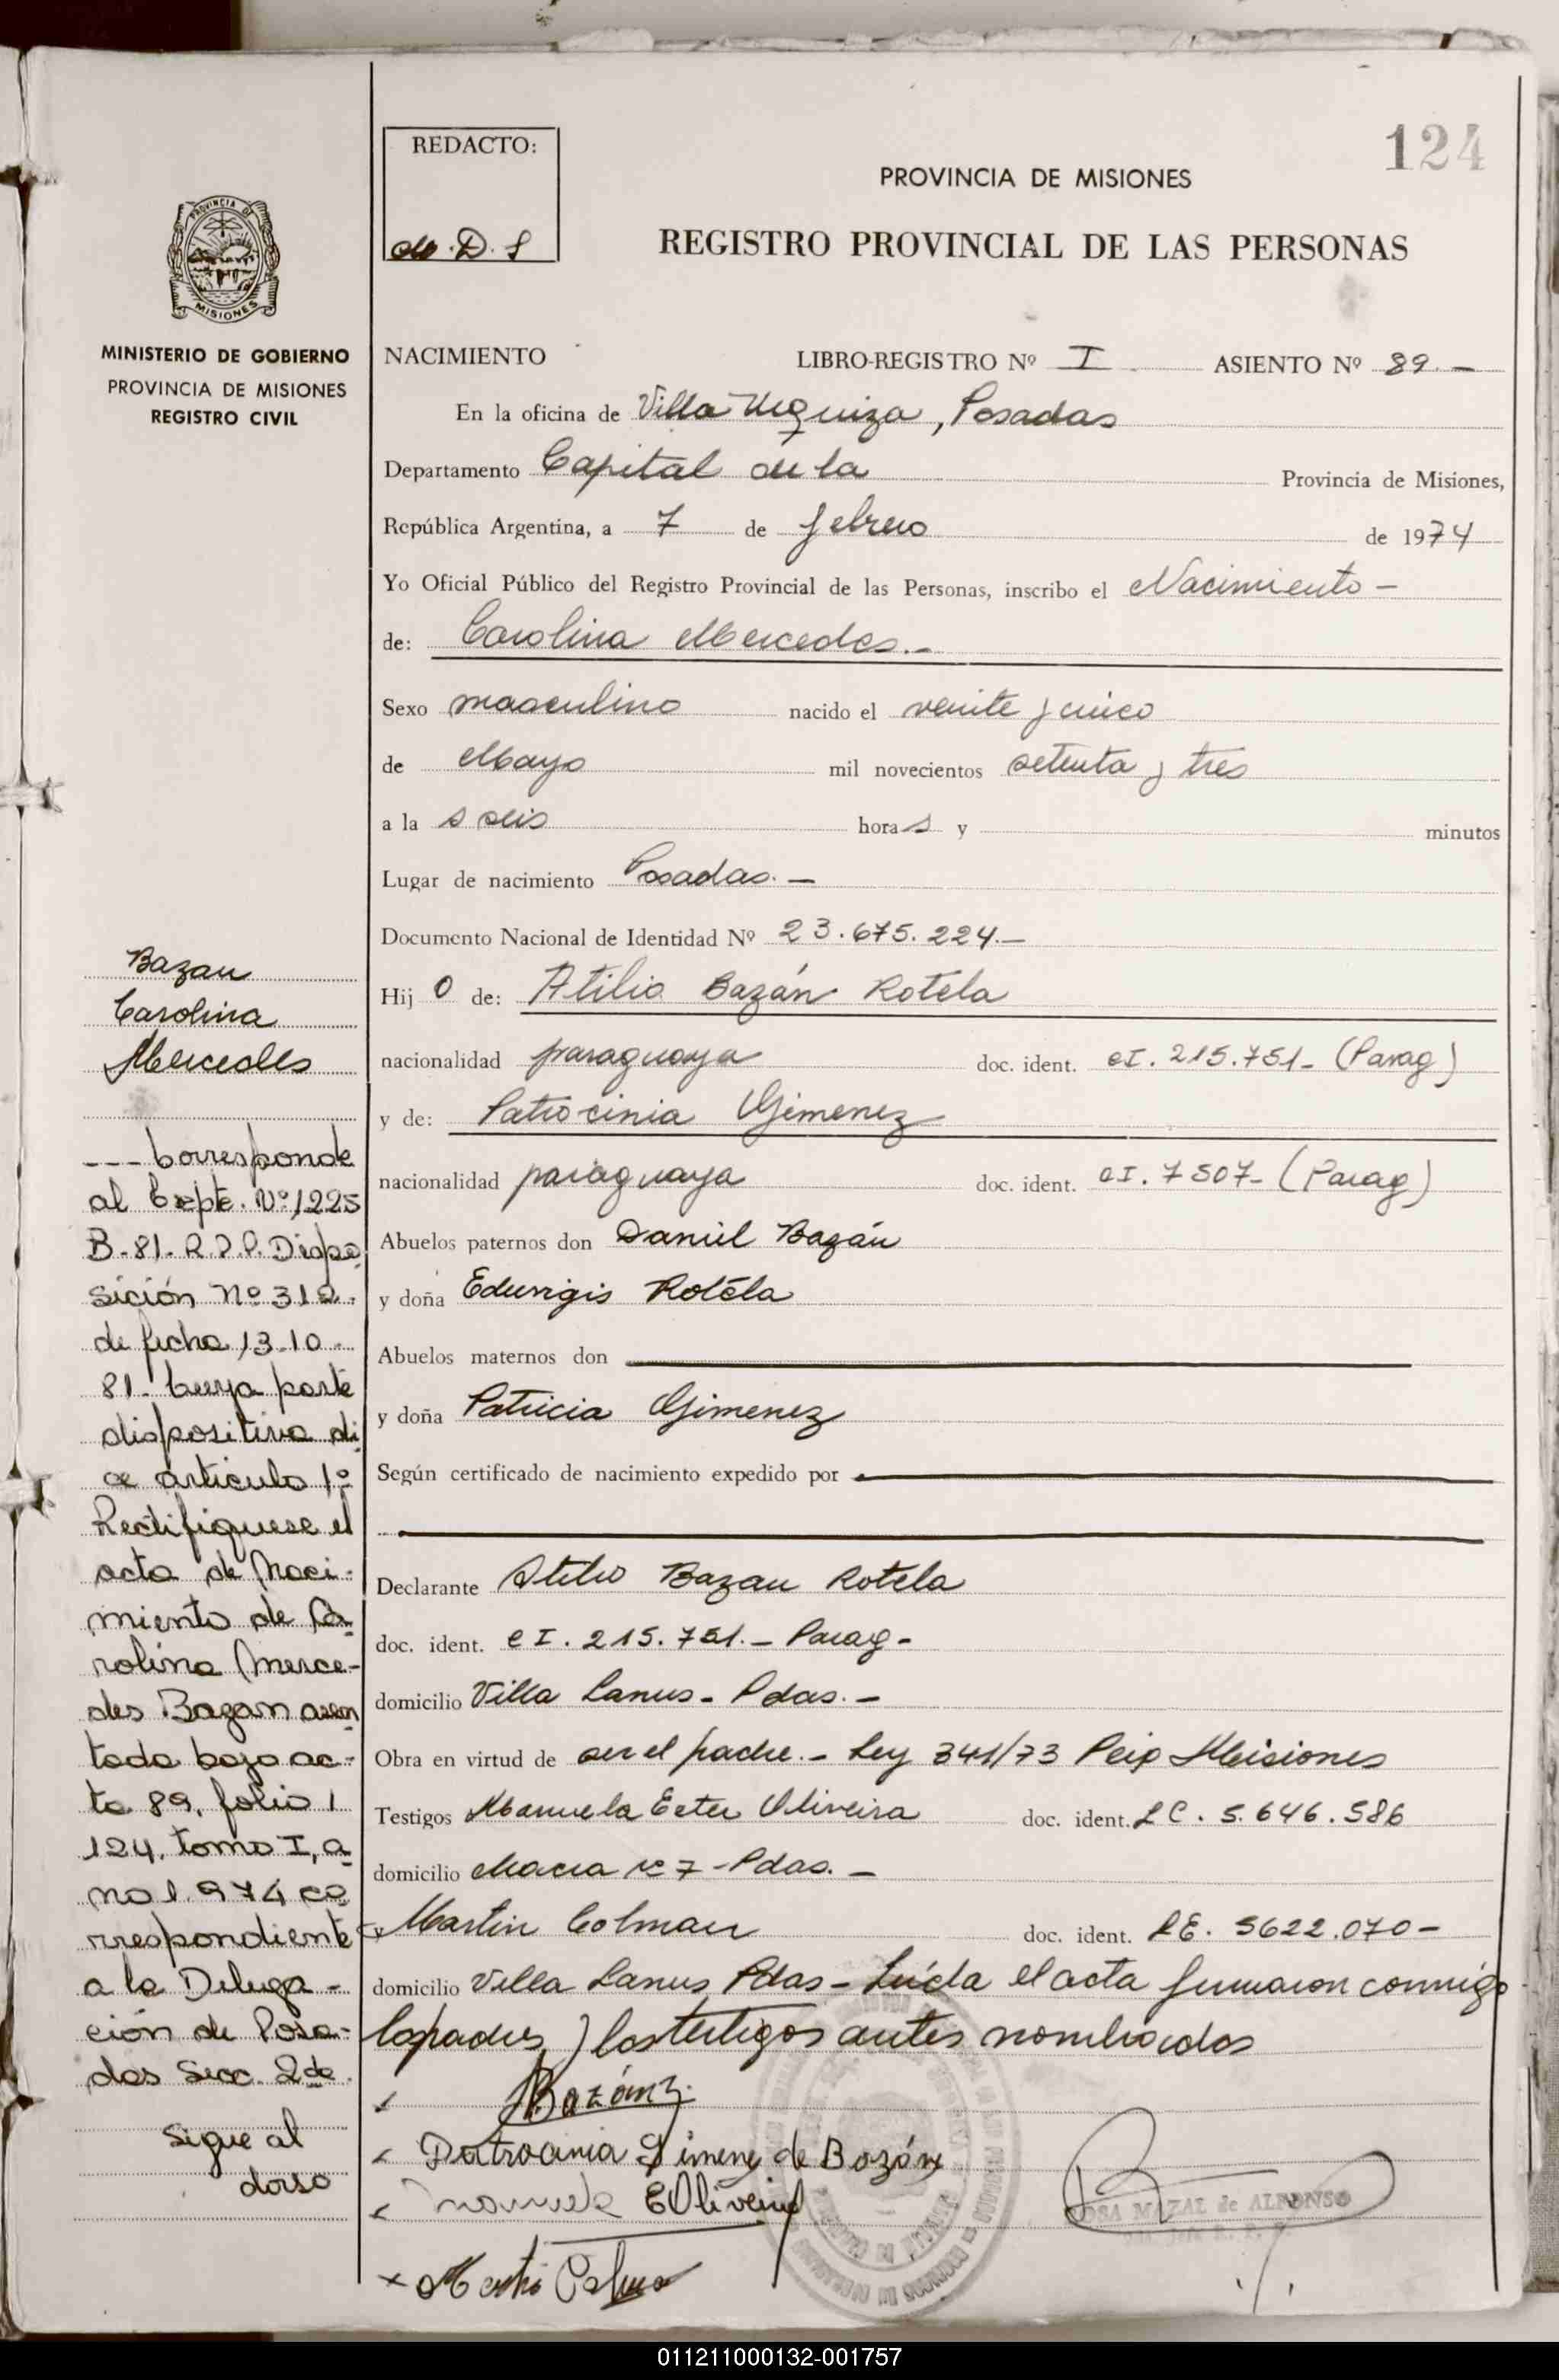 124
REDACTO:
PROVINCIA DE MISIONES
REGISTRO PROVINCIAL DE LAS PERSONAS
PROVINCIA DE
MISIONES
MINISTERIO DE GOBIERNO
PROVINCIA DE MISIONES
REGISTRO CIVIL
NACIMIENTO LIBRO-REGISTRO Nº I ASIENTO Nº 89.-
En la oficina de Villa Urquiza, Posadas
Departamento Capital de la Provincia de Misiones,
República Argentina, a 7 de febrero de 1974
Yo Oficial Público del Registro Provincial de las Personas, inscribo el Nacimiento -
de: Carolina Mercedes.-
Sexo masculino nacido el veinte y cinco
de Mayo mil novecientos setenta y tres
a la s seis hora s y minutos
Lugar de nacimiento Posadas.-
Documento Nacional de Identidad Nº 23.675.224.-
Hij o de: Atilio Bazán Rotela
nacionalidad paraguaya doc. ident. CI. 215.751- (Parag)
y de: Patrocinia Gimenez
nacionalidad paraguaya doc. ident. CI. 7507- (Parag)
Abuelos paternos don Daniel Bazán
y doña Eduvigis Rotela
Abuelos maternos don
y doña Patricia Gimenez
Según certificado de nacimiento expedido por
Declarante Atilio Bazan Rotela
doc. ident. CI. 215.751.- Parag-
domicilio Villa Lanus- Pdas.-
Obra en virtud de ser el padre.- Ley 341/73 Misiones
Testigos Manuela Ester Oliveira doc. ident. LC. 5.646.586
domicilio Chacra Nº 7-Pdas.-
Martin Colman doc. ident. LE. 5622.070-
domicilio Villa Lanus, Pdas- Leída el acta firmaron conmigo
los padres, y los testigos antes nombrados
Bazán
Patrocinia Gimenez de Bazán
Manuela E Oliveira
ROSA MAZAL de ALFONSO
Bazan
Carolina
Mercedes
--- Corresponde
al Expte. Nº 1225
B-81- R.P.P. Dispo
sición Nº 312.
de fecha 13-10-
81- Cuya parte
dispositiva di
ce articulo 1º
Rectifiquese el
acta de Naci-
miento de Ca
rolina Merce-
des Bazan asen
tada bajo ac-
ta 89, folio
124, tomo I, a
ño 1.974 co
rrespondiente
a la Delega-
ción de Posa-
das Secc. 2da.
Sigue al
dorso
011211000132-001757